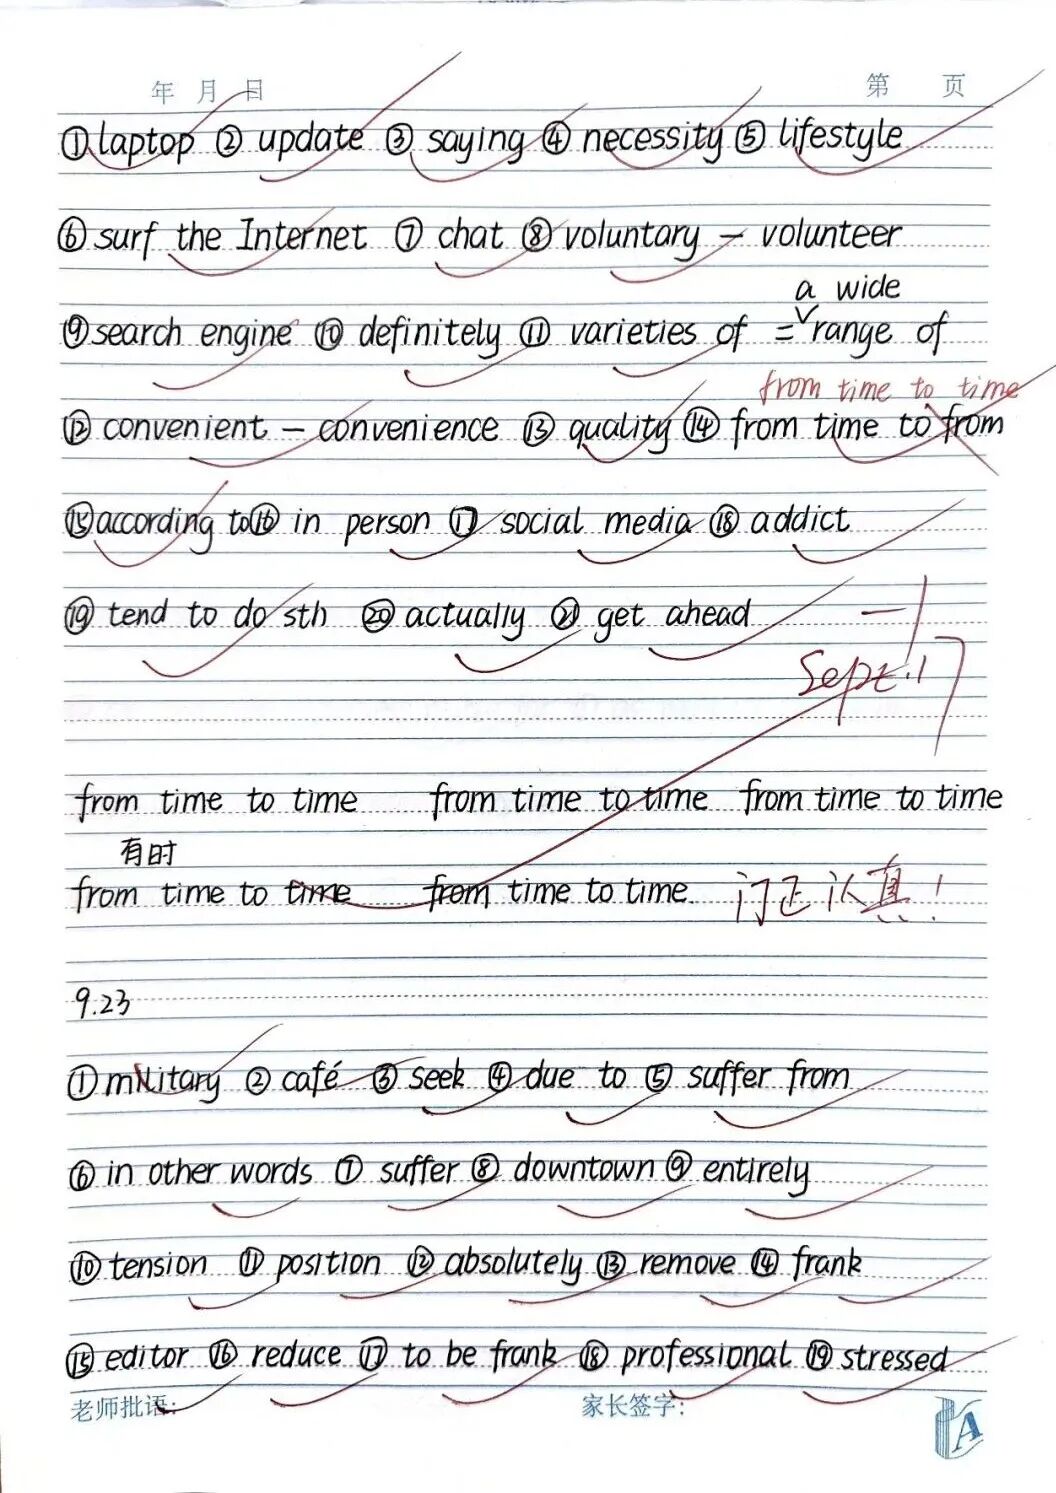 年 月 日 第 页
① laptop ② update ③ saying ④ necessity ⑤ lifestyle
⑥ surf the Internet ⑦ chat ⑧ voluntary — volunteer
a wide
⑨ search engine ⑩ definitely ⑪ varieties of = range of
from time to time
⑫ convenient — convenience ⑬ quality ⑭ from time to from
⑮ according to ⑯ in person ⑰ social media ⑱ addict
⑲ tend to do sth ⑳ actually ㉑ get ahead -1
Sept. 17
from time to time from time to time from time to time
有时
from time to time from time to time 订正认真!
9.23
① military ② café ③ seek ④ due to ⑤ suffer from
⑥ in other words ⑦ suffer ⑧ downtown ⑨ entirely
⑩ tension ⑪ position ⑫ absolutely ⑬ remove ⑭ frank
⑮ editor ⑯ reduce ⑰ to be frank ⑱ professional ⑲ stressed
老师批语: 家长签字:
A